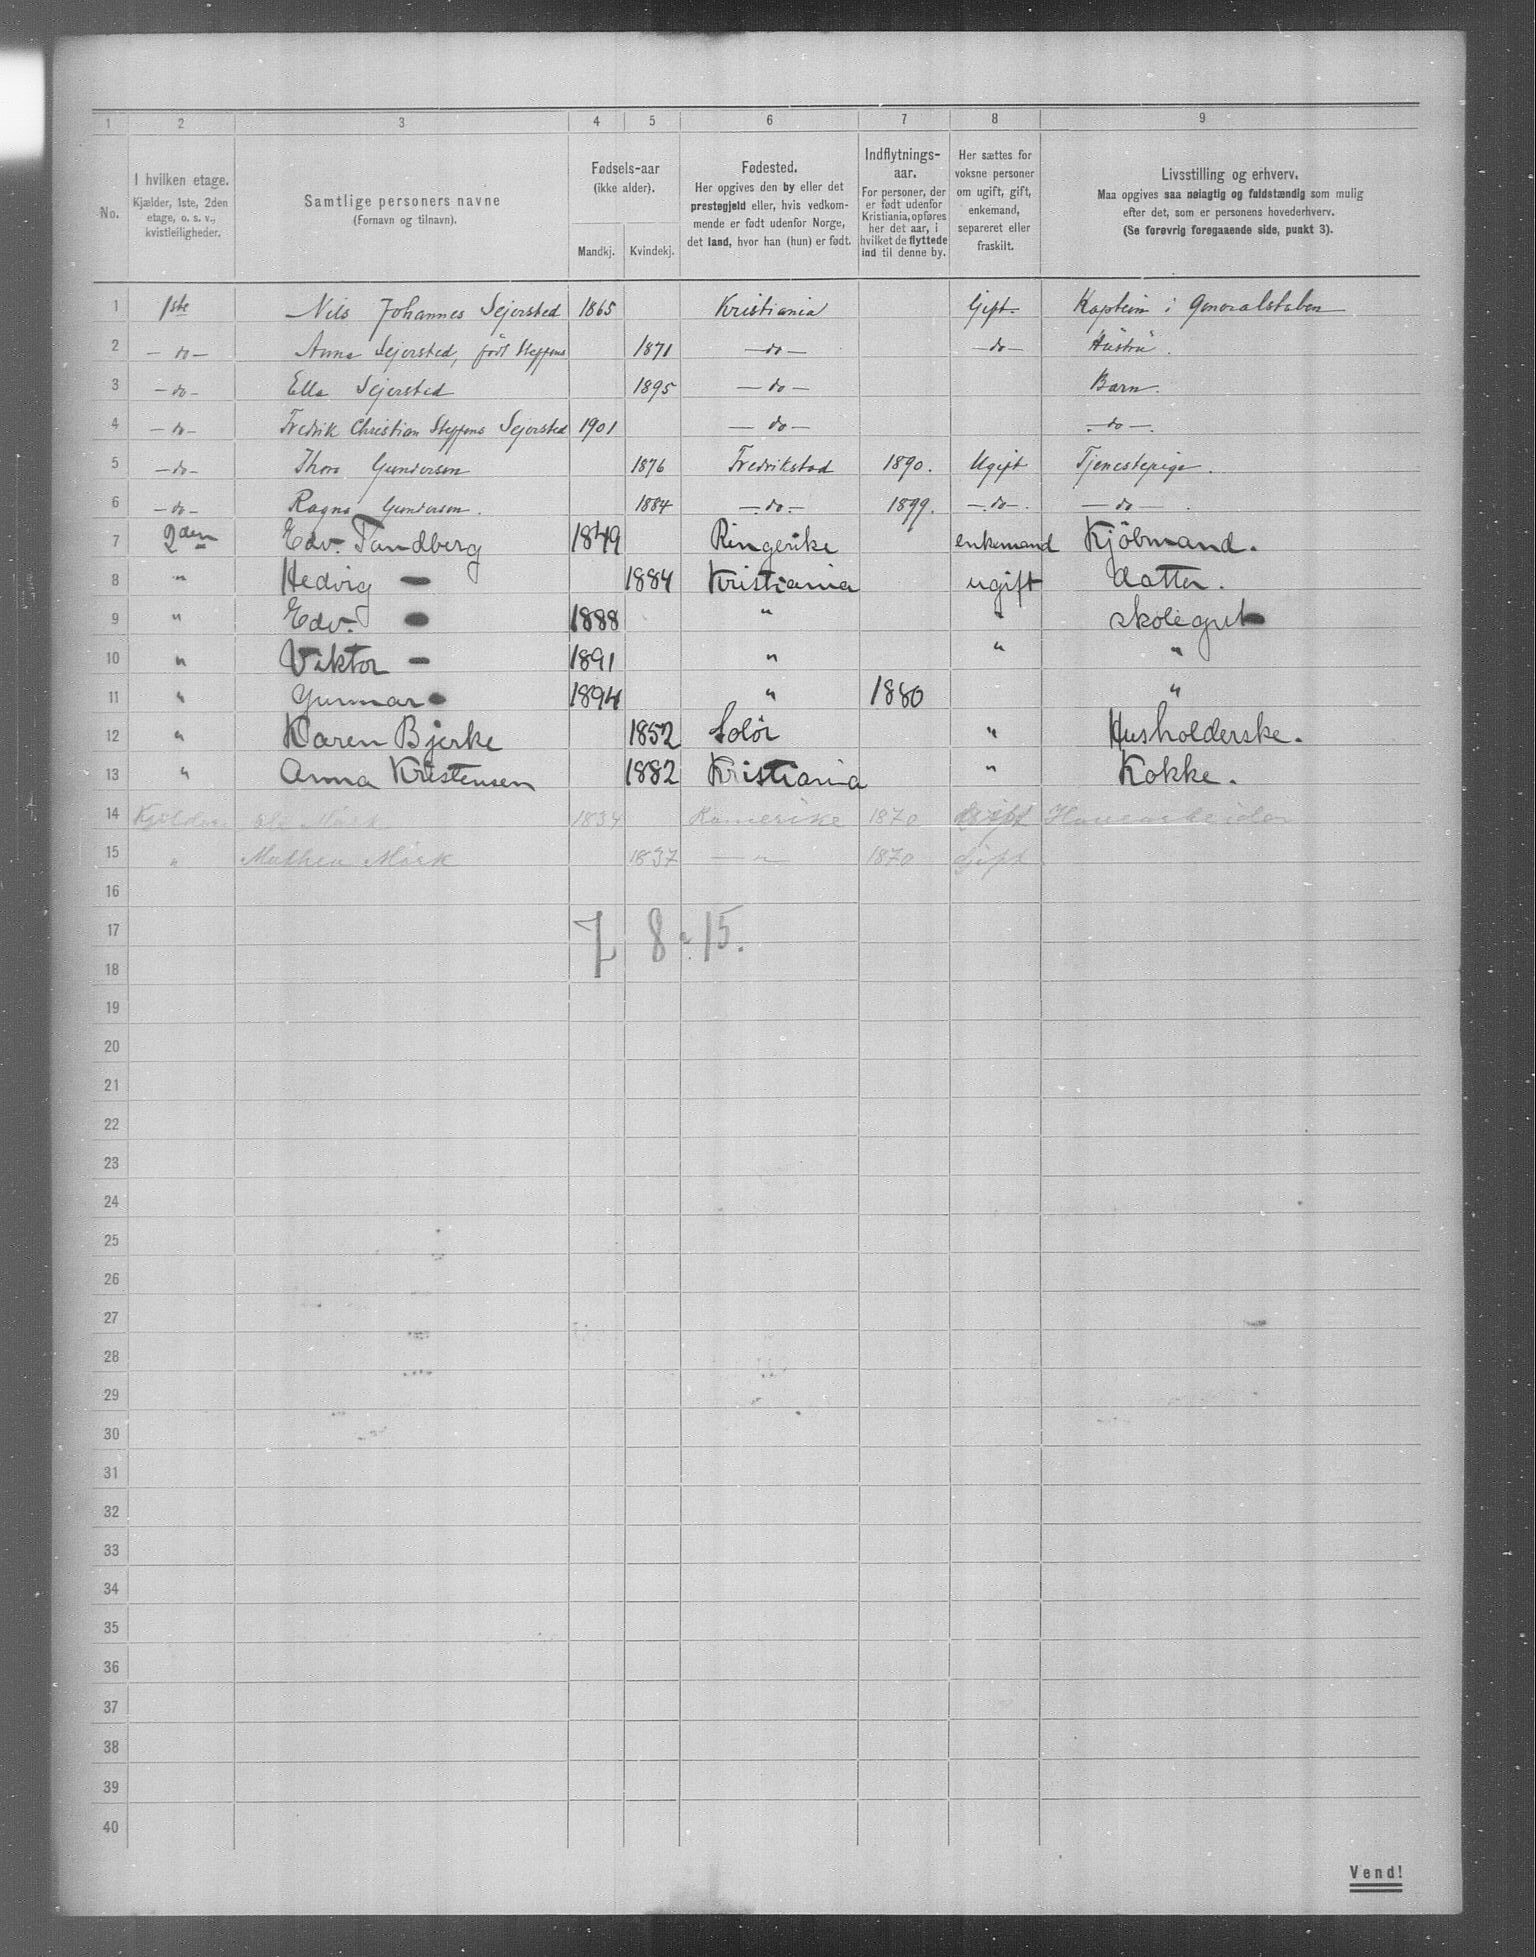 1 2 3 4 5 6 7 8 9
No.
I hvilken etage.
Kjælder, 1ste, 2den
etage, o. s. v.,
kvistleiligheder.
Samtlige personers navne
(Fornavn og tilnavn).
Fødsels-aar
(ikke alder).
Mandkj. Kvindekj.
Fødested.
Her opgives den by eller det
prestegjeld eller, hvis vedkom-
mende er født udenfor Norge,
det land, hvor han (hun) er født.
Indflytnings-
aar.
For personer, der
er født udenfor
Kristiania, opføres
her det aar, i
hvilket de flyttede
ind til denne by.
Her sættes for
voksne personer
om ugift, gift,
enkemand,
separeret eller
fraskilt.
Livsstilling og erhverv.
Maa opgives saa nøiagtig og fuldstændig som mulig
efter det, som er personens hovederhverv.
(Se forøvrig foregaaende side, punkt 3).
1 1ste Nils Johannes Sejersted 1865 Kristiania Gift. Kaptein i Generalstaben
2 - do - Anna Sejersted, født Steffens 1871 - do - - do - Hustru.
3 - do - Ella Sejersted 1895 - do - Barn.
4 - do - Fredrik Christian Steffens Sejersted 1901 - do - - do -.
5 - do - Thora Gundersen 1876 Fredrikstad 1890. Ugift Tjenestepige.
6 - do - Ragna Gundersen. 1884 - do - 1899. - do -. - do -.
7 2den Edv. Tandberg 1849 Ringerike enkemand Kjöbmand.
8 " Hedvig - 1884 Kristiania ugift datter.
9 " Edv. - 1888 " " skolegut
10 " Viktor - 1891 " " "
11 " Gunnar - 1894 " 1880 "
12 " Karen Bjerke 1852 Solör " Husholderske.
13 " Anna Kristensen 1882 Kristiania " Kokke.
14 Kjelder Ole Mörk 1834 Romerike 1870 Gift Havearbeider
15 " Mathea Mörk 1837 - " - 1870 Gift
16
17
7 8 = 15.
18
19
20
21
22
23
24
25
26
27
28
29
30
31
32
33
34
35
36
37
38
39
40
Vend!